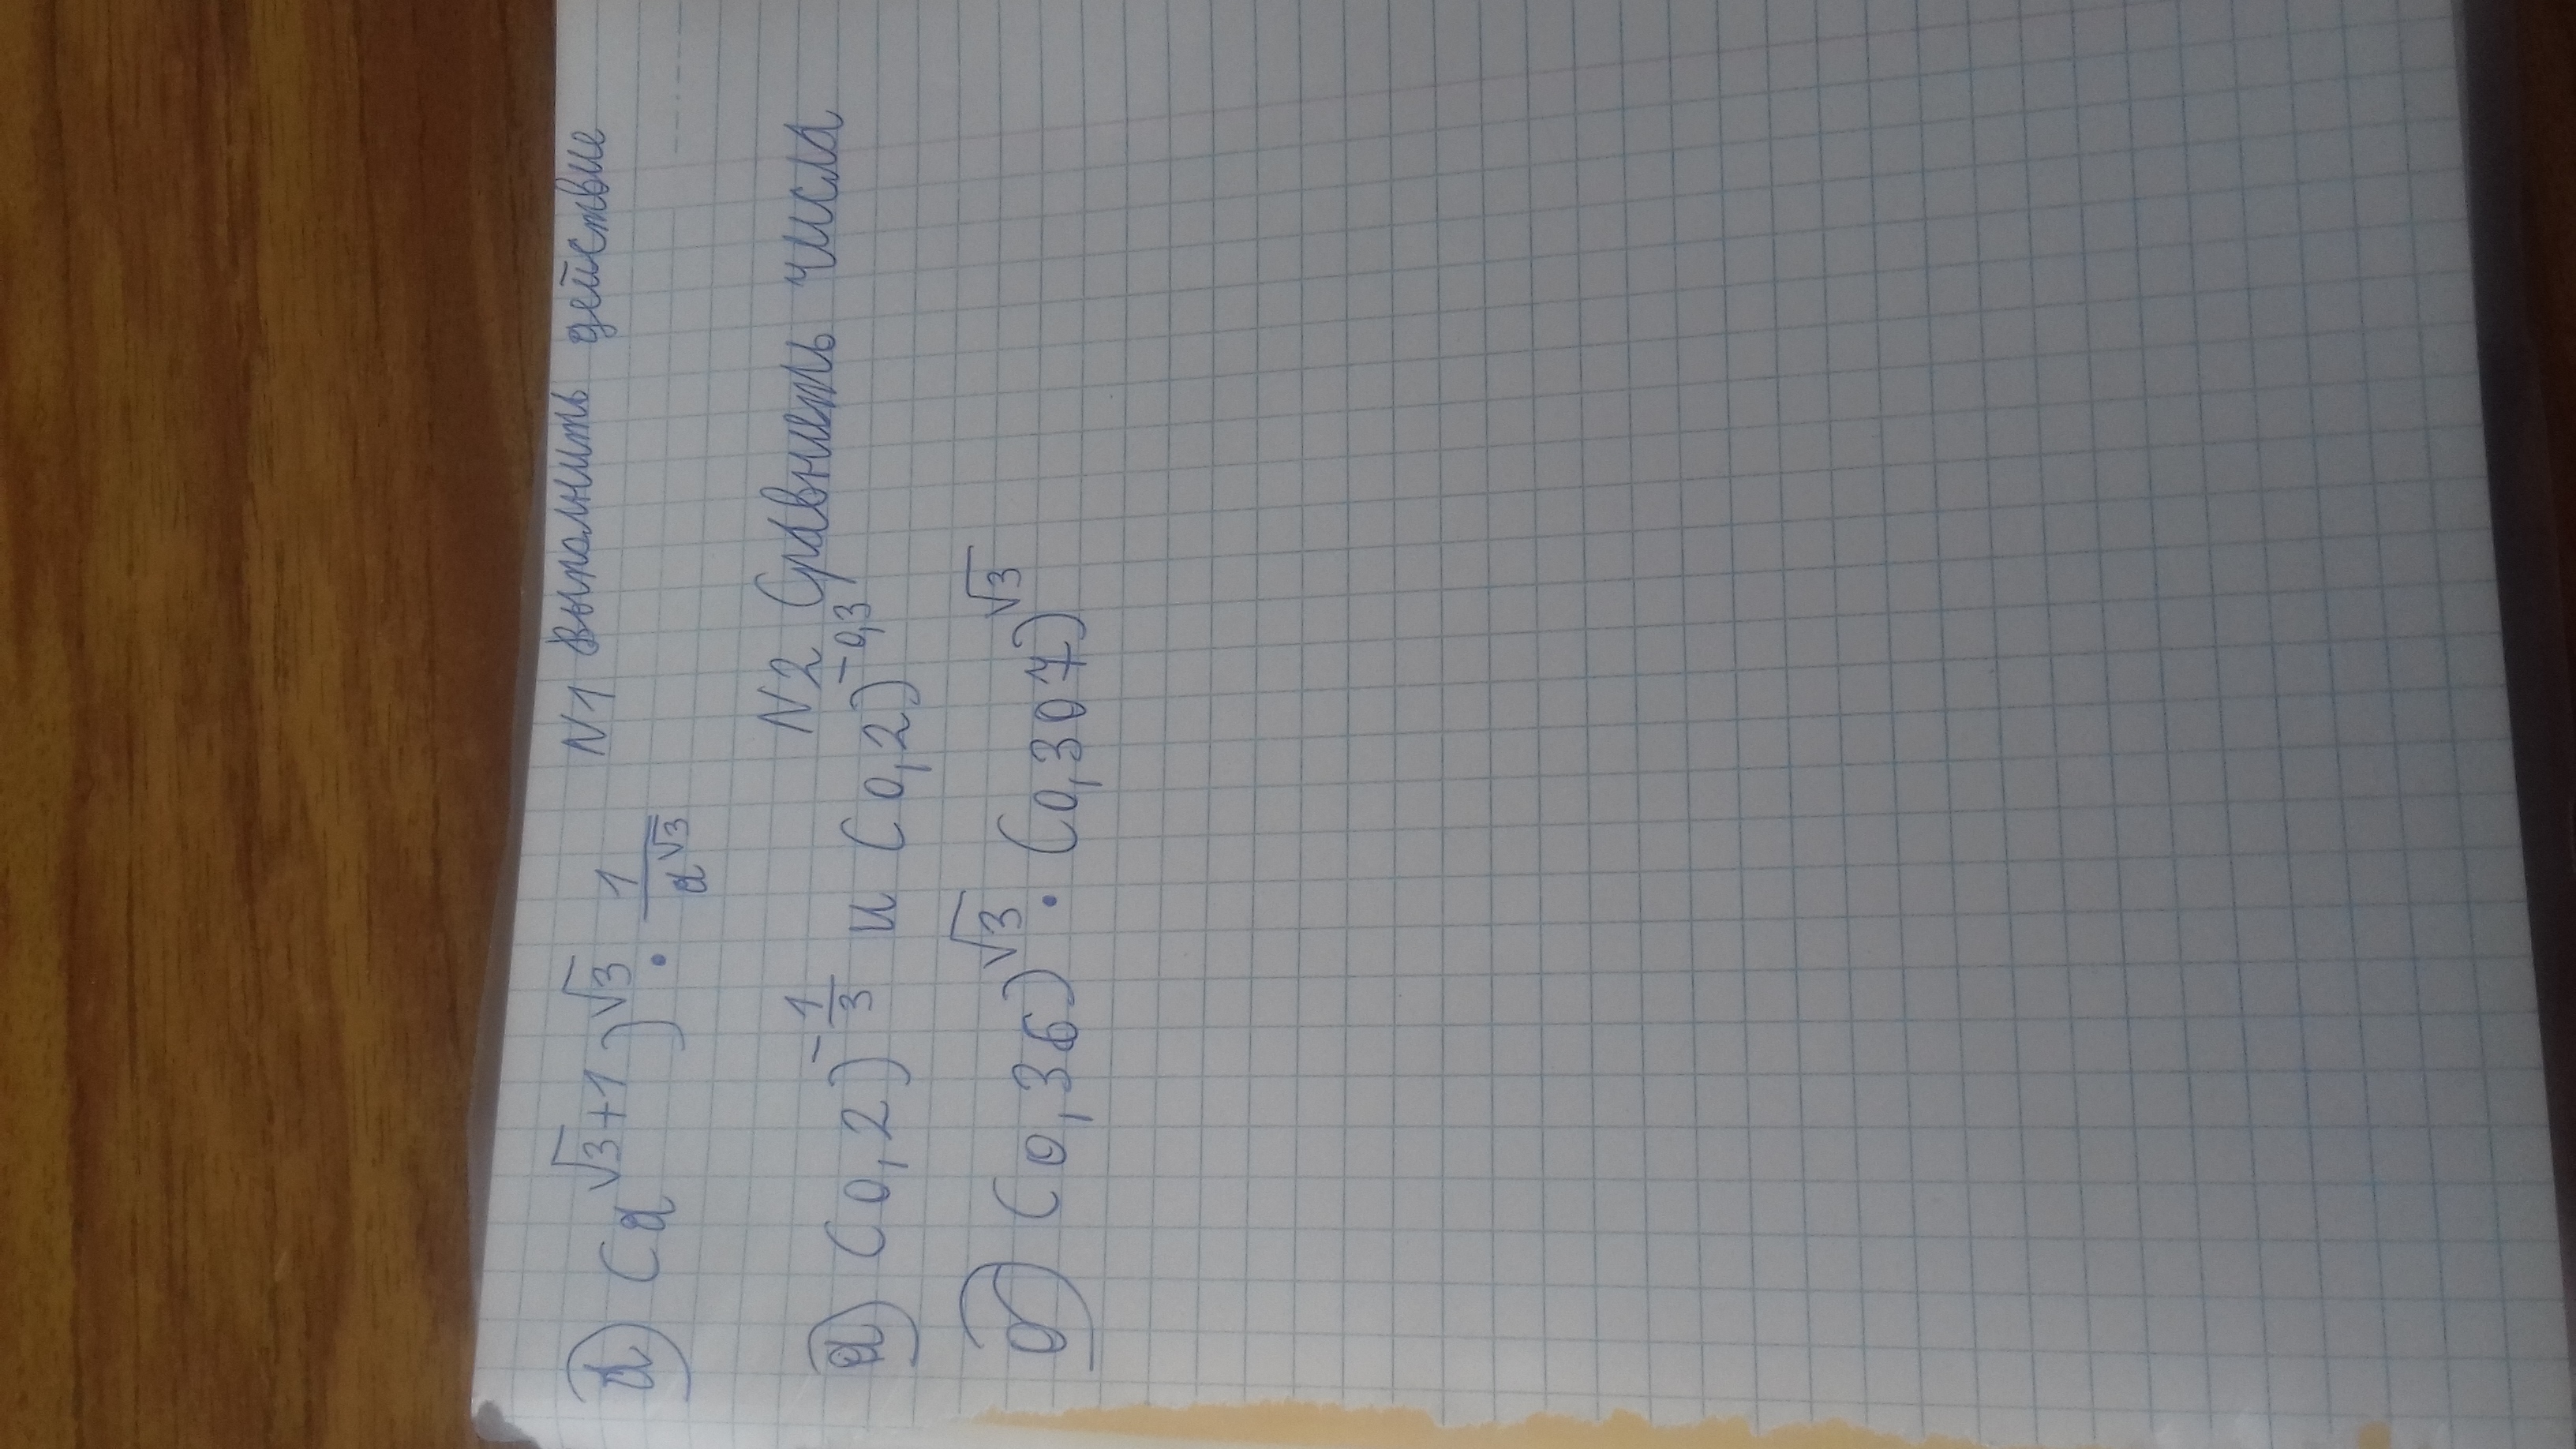 N1 выполнить действие
а) (a^(√3+1))^√3 · 1/a^√3
N2 Сравнить числа
а) (0,2)^(-1/3) и (0,2)^(-0,3)
б) (0,36)^√3 · (0,307)^√3